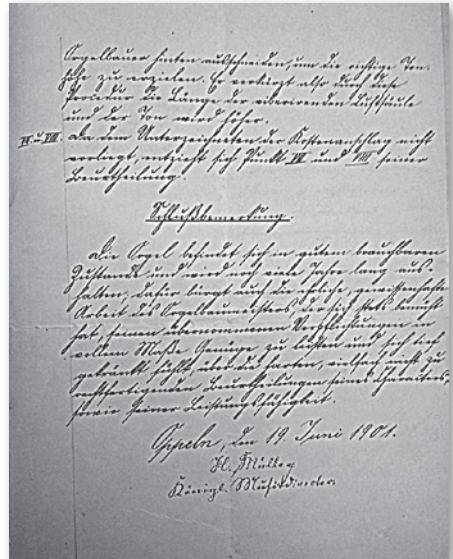 Orgelbauer hinten ausschneiden, um die richtige Ton-
höhe zu erzielen. Er verkürzt also durch diese
Procedur die Länge der vibrirenden Luftsäule
und der Ton wird höher.
VI. u. VIII. Da dem Unterzeichneten der Kostenanschlag nicht
vorliegt, entzieht sich Punkt und VIII seiner
Beurtheilung.
Schlußbemerkung.
Die Orgel befindet sich in gutem brauchbaren
Zustande und wird noch viele Jahre lang aus-
halten, dafür bürgt auch die solide, gewissenhafte
Arbeit des Orgelbaumeisters, der sich stets bemüht
hat, seinen übernommenen Verpflichtungen in
vollem Maße Genüge zu leisten und sich tief
gekränkt fühlt, über die harten, vielfach nicht zu
rechtfertigenden Beurtheilungen seines Charakters,
sowie seiner Leistungsfähigkeit.
Oppeln, den 19. Juni 1901.
H. Müller
Königl. Musikdirector